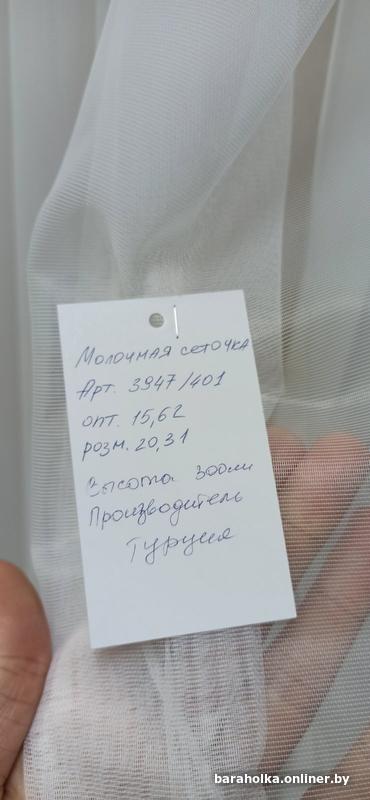 Молочная сеточка
Арт. 3947/401
опт. 15,62
розн. 20,31
Высота 300см
Производитель
Турция
baraholka.onliner.by